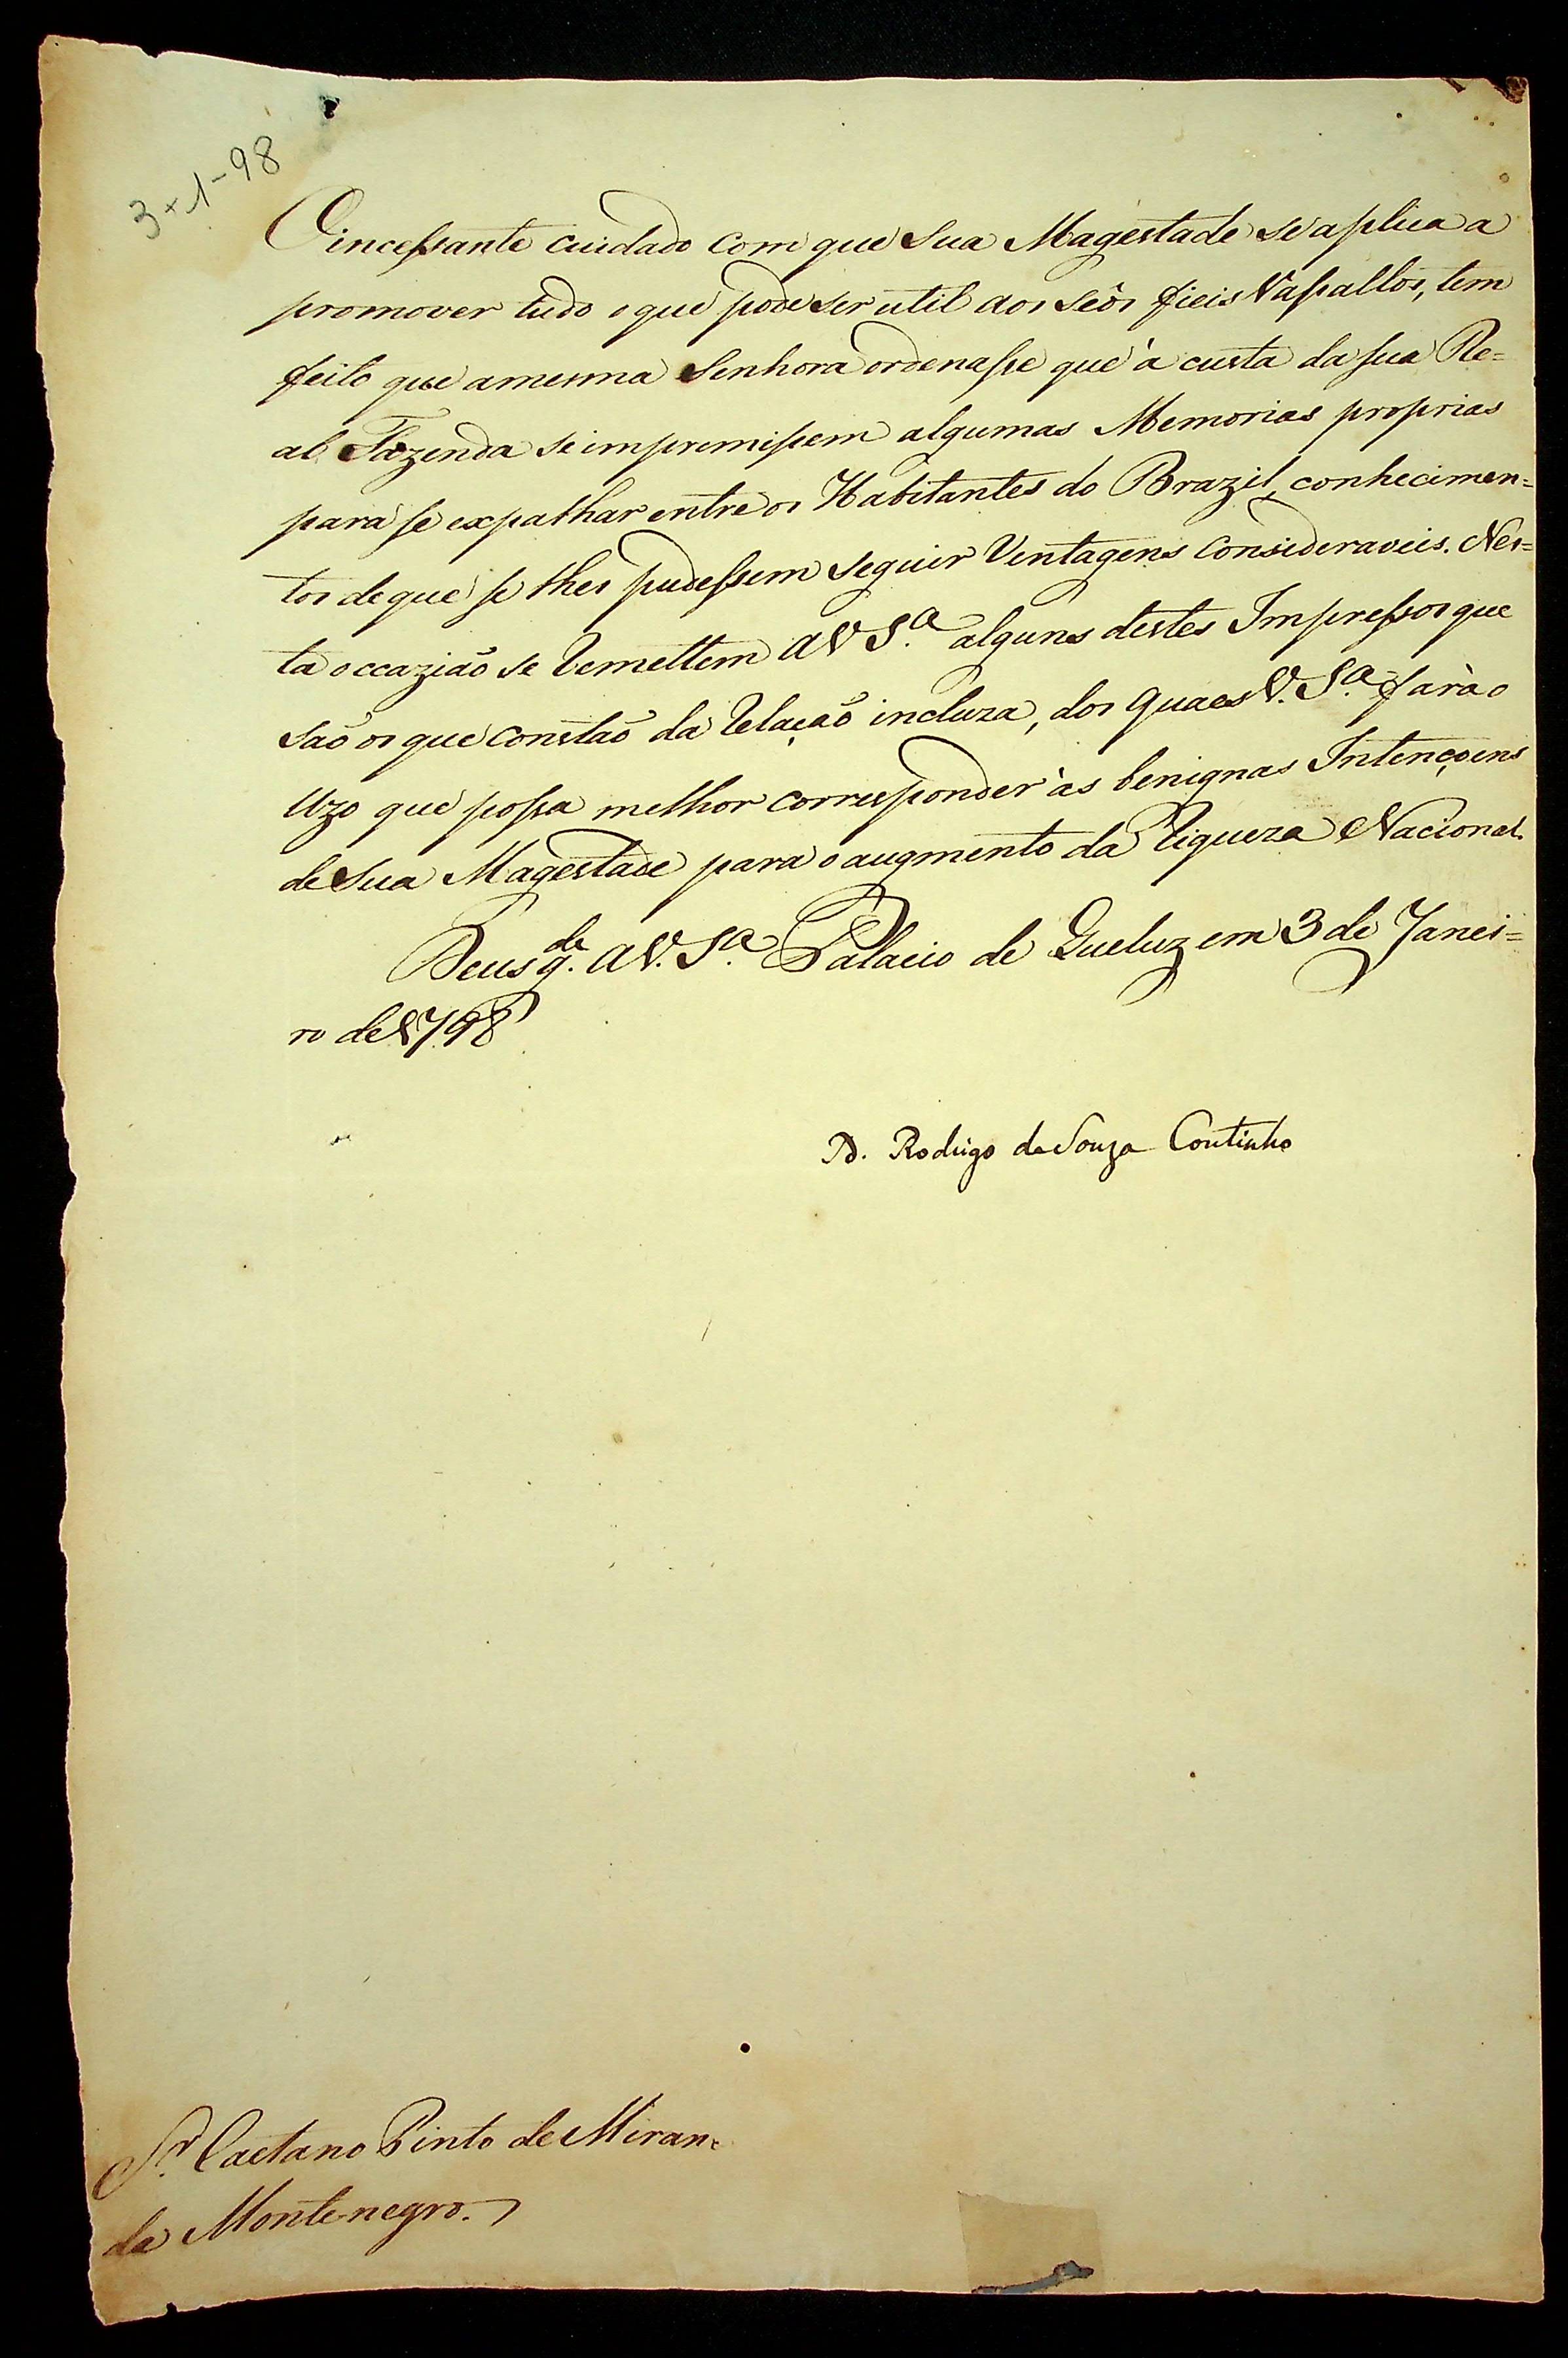 3-1-98
O incessante cuidado com que Sua Magestade se aplica a
promover tudo o que pode ser util aos seôs fieis Vassallos, tem
feito que a mesma Senhora ordenasse que à custa da sua Re=
al Fazenda se impremissem algumas Memorias proprias
para se expalhar entre os Habitantes do Brazil, conhecimen=
tos de que se lhes pudessem seguir Ventagens Consideraveis. Nes=
ta occazião se remettem a V S.ª alguns destes Impressos que
são os que constão da relação incluza, dos quaes V. S.ª farà o
uzo que possa melhor corresponder às benignas Intençoens
de Sua Magestade para o augmento da Riqueza Nacional.
Deus g.de a V. S.ª Palacio de Queluz em 3 de Janei=
ro de 1798
D. Rodrigo de Souza Coutinho
Sr. Caetano Pinto de Miran=
da Montenegro.